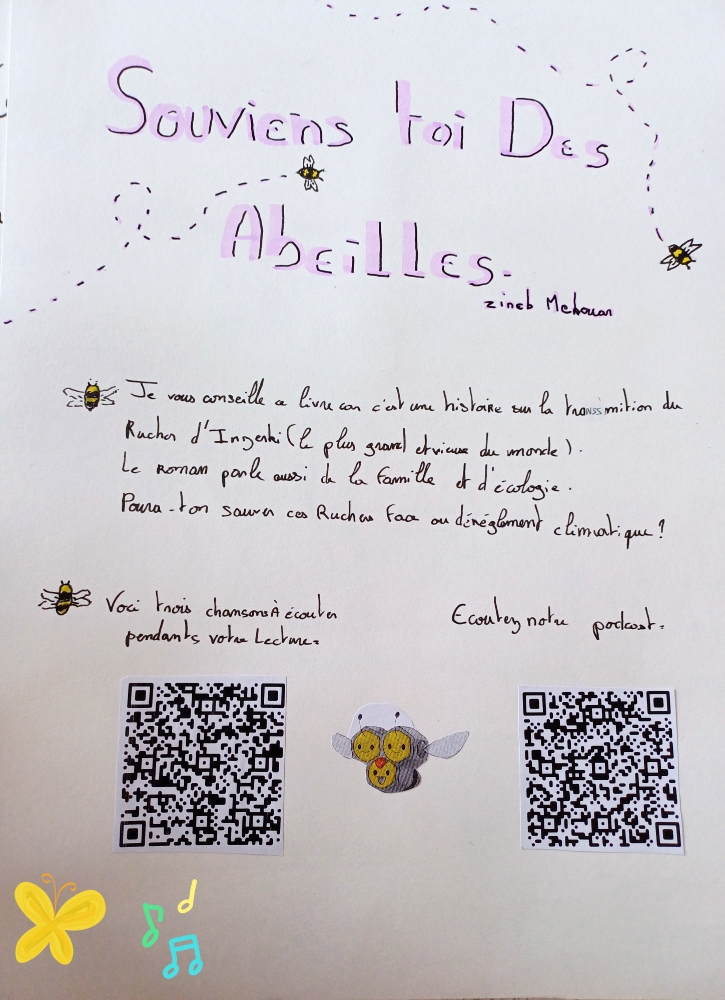 Souviens toi Des
Abeilles.
zineb Mekouar
Je vous conseille ce livre car c'est une histoire sur la transsmition du
Rucher d'Inzerki (le plus grand et vieux du monde).
Le roman parle aussi de la famille et d'écologie.
Poura-t-on sauver ces Ruchers face au dérèglement climatique?
Voci trois chansons À écouter
pendants votre Lecture.
Ecoutez notre podcast.